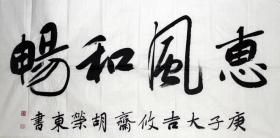 惠風和暢
庚子大吉攸齋胡榮東書